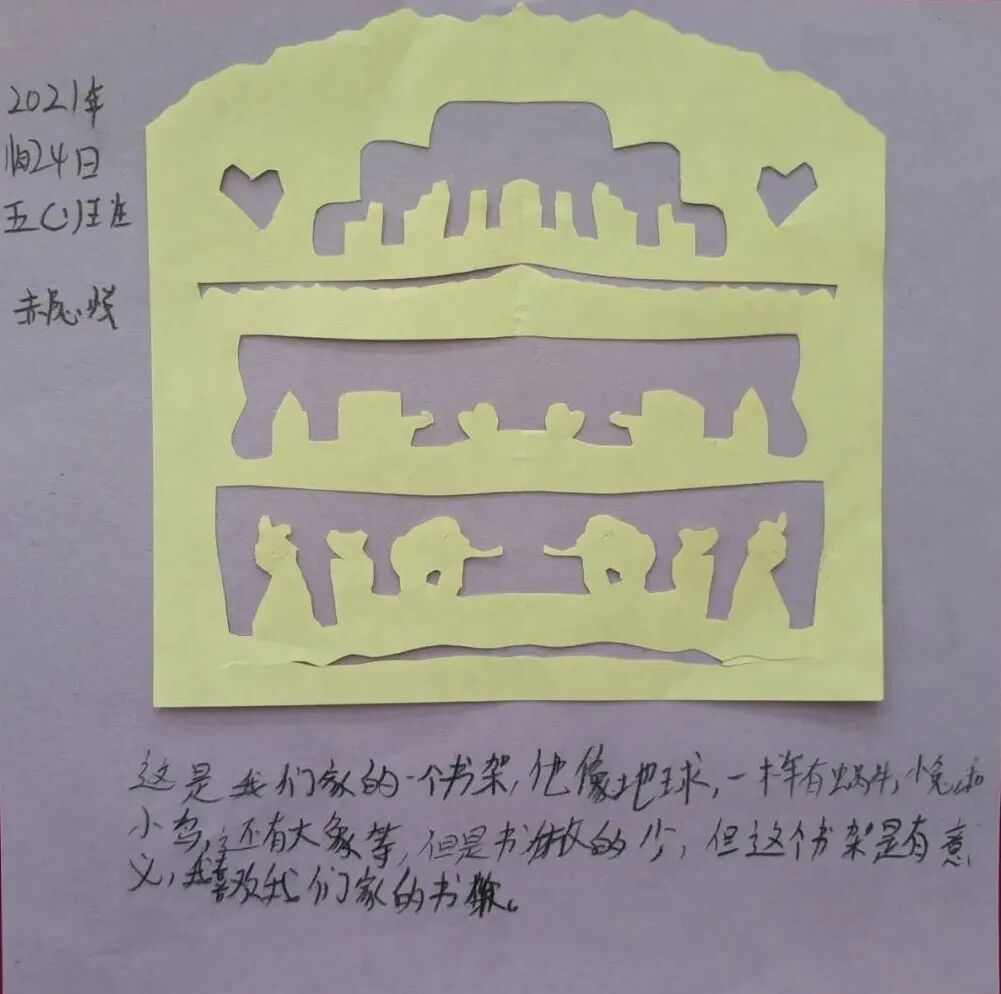 2021年
11月24日
五(1)班
赤心悦
这是我们家的一个书架,他像地球,一样有蜗牛,小兔和
小鸟,还有大象等,但是书放的少,但这个书架是有意
义,我喜欢我们家的书架。